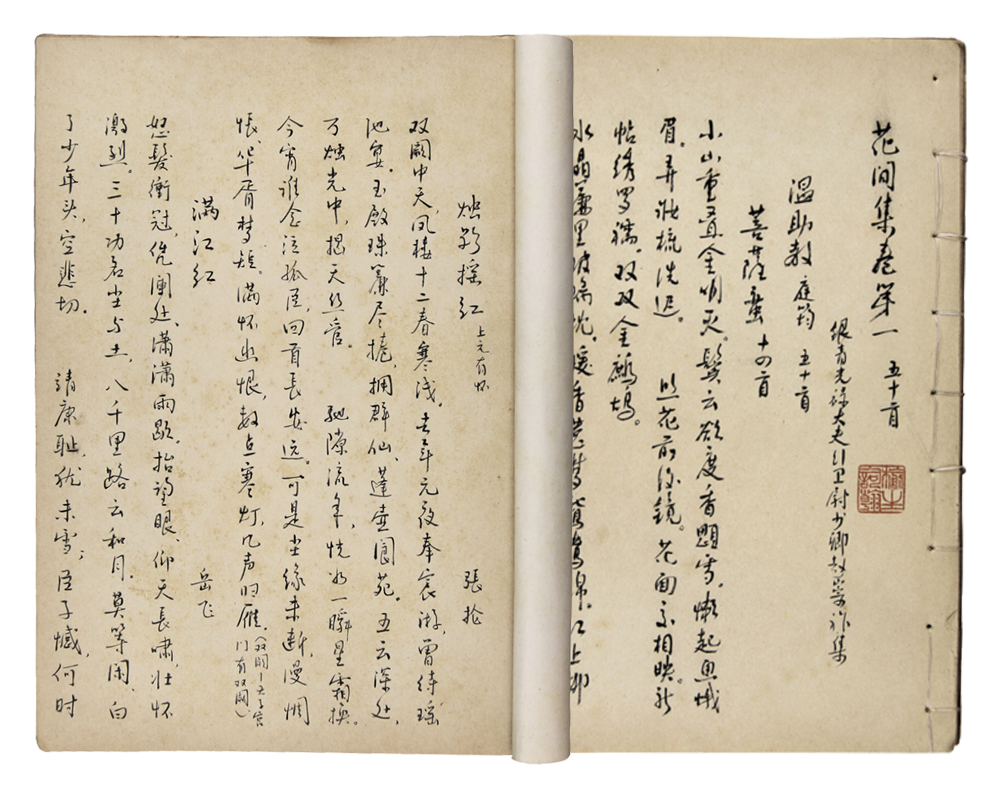 花间集卷第一 五十首
银青光禄大夫行卫尉少卿赵崇祚集
温助教 庭筠 五十首
菩萨蛮 十四首
小山重叠金明灭。鬓云欲度香腮雪。懒起画蛾
眉。弄妆梳洗迟。 照花前后镜。花面交相映。新
帖绣罗襦。双双金鹧鸪。
水晶帘里玻璃枕。暖香惹梦鸳鸯帛。江上柳
烛影摇红 上元有怀 張抡
双阙中天,凤楼十二春寒浅。去年元夜奉宸游,曾侍瑶
池宴。玉殿珠簾尽捲,拥群仙、蓬壶阆苑。五云深处,
万烛光中,揭天丝管。 驰隙流年,恍如一瞬星霜换。
今宵谁念泣孤臣,回首长安远。可是尘缘未断,漫惆
怅、华胥梦短。满怀幽恨,数点寒灯,几声归雁。(双阙—天子宫
门有双阙)
满江红 岳飞
怒髮衝冠,凭闌处、潇潇雨歇。抬望眼、仰天长啸,壮怀
激烈。三十功名尘与土,八千里路云和月。莫等闲、白
了少年头,空悲切。 靖康耻,犹未雪;臣子憾,何时